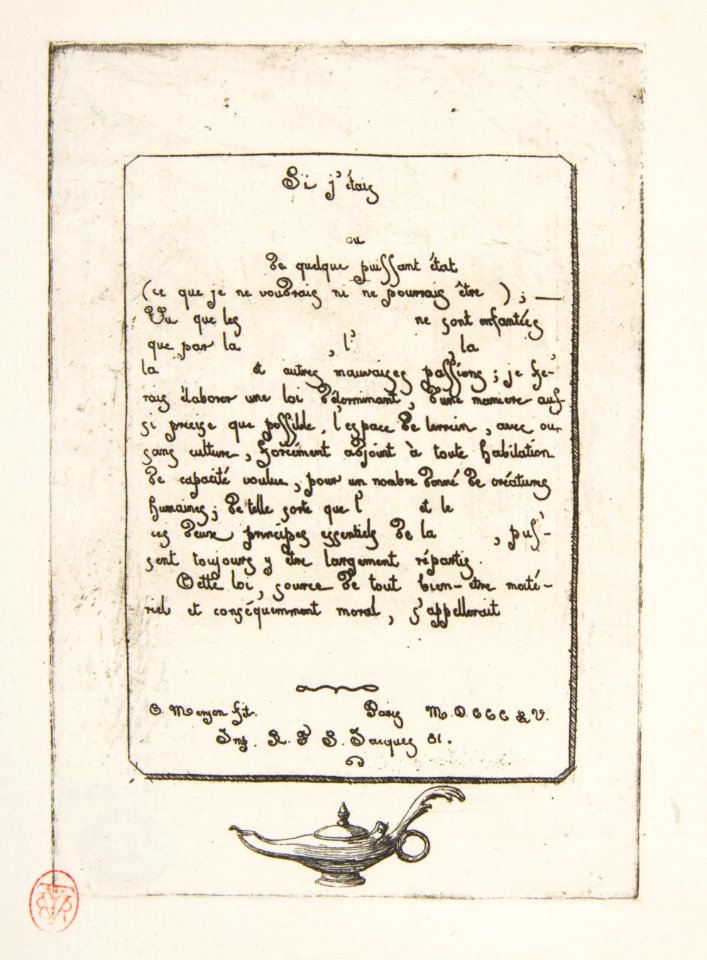 Si j'étais
ou
de quelque puissant état
(ce que je ne voudrais ni ne pourrais être ) ; —
Vu que les ne sont enfantés
que par la , l' , la
la et autres mauvaises passions ; je fe-
rais élaborer une loi déterminant, d'une manière aus-
si précise que possible, l'espace de terrein, avec ou
sans culture, forcément adjoint à toute habitation
de capacité voulue, pour un nombre donné de créatures
humaines ; de telle sorte que l' et le
ces deux principes essentiels de la , puis-
sent toujours y être largement répartis.
Cette loi, source de tout bien-être maté-
riel et conséquemment moral, s'appellerait
C. Meryon fit. Paris M.D.CCC LV.
Imp. R. S. Jacques 81.